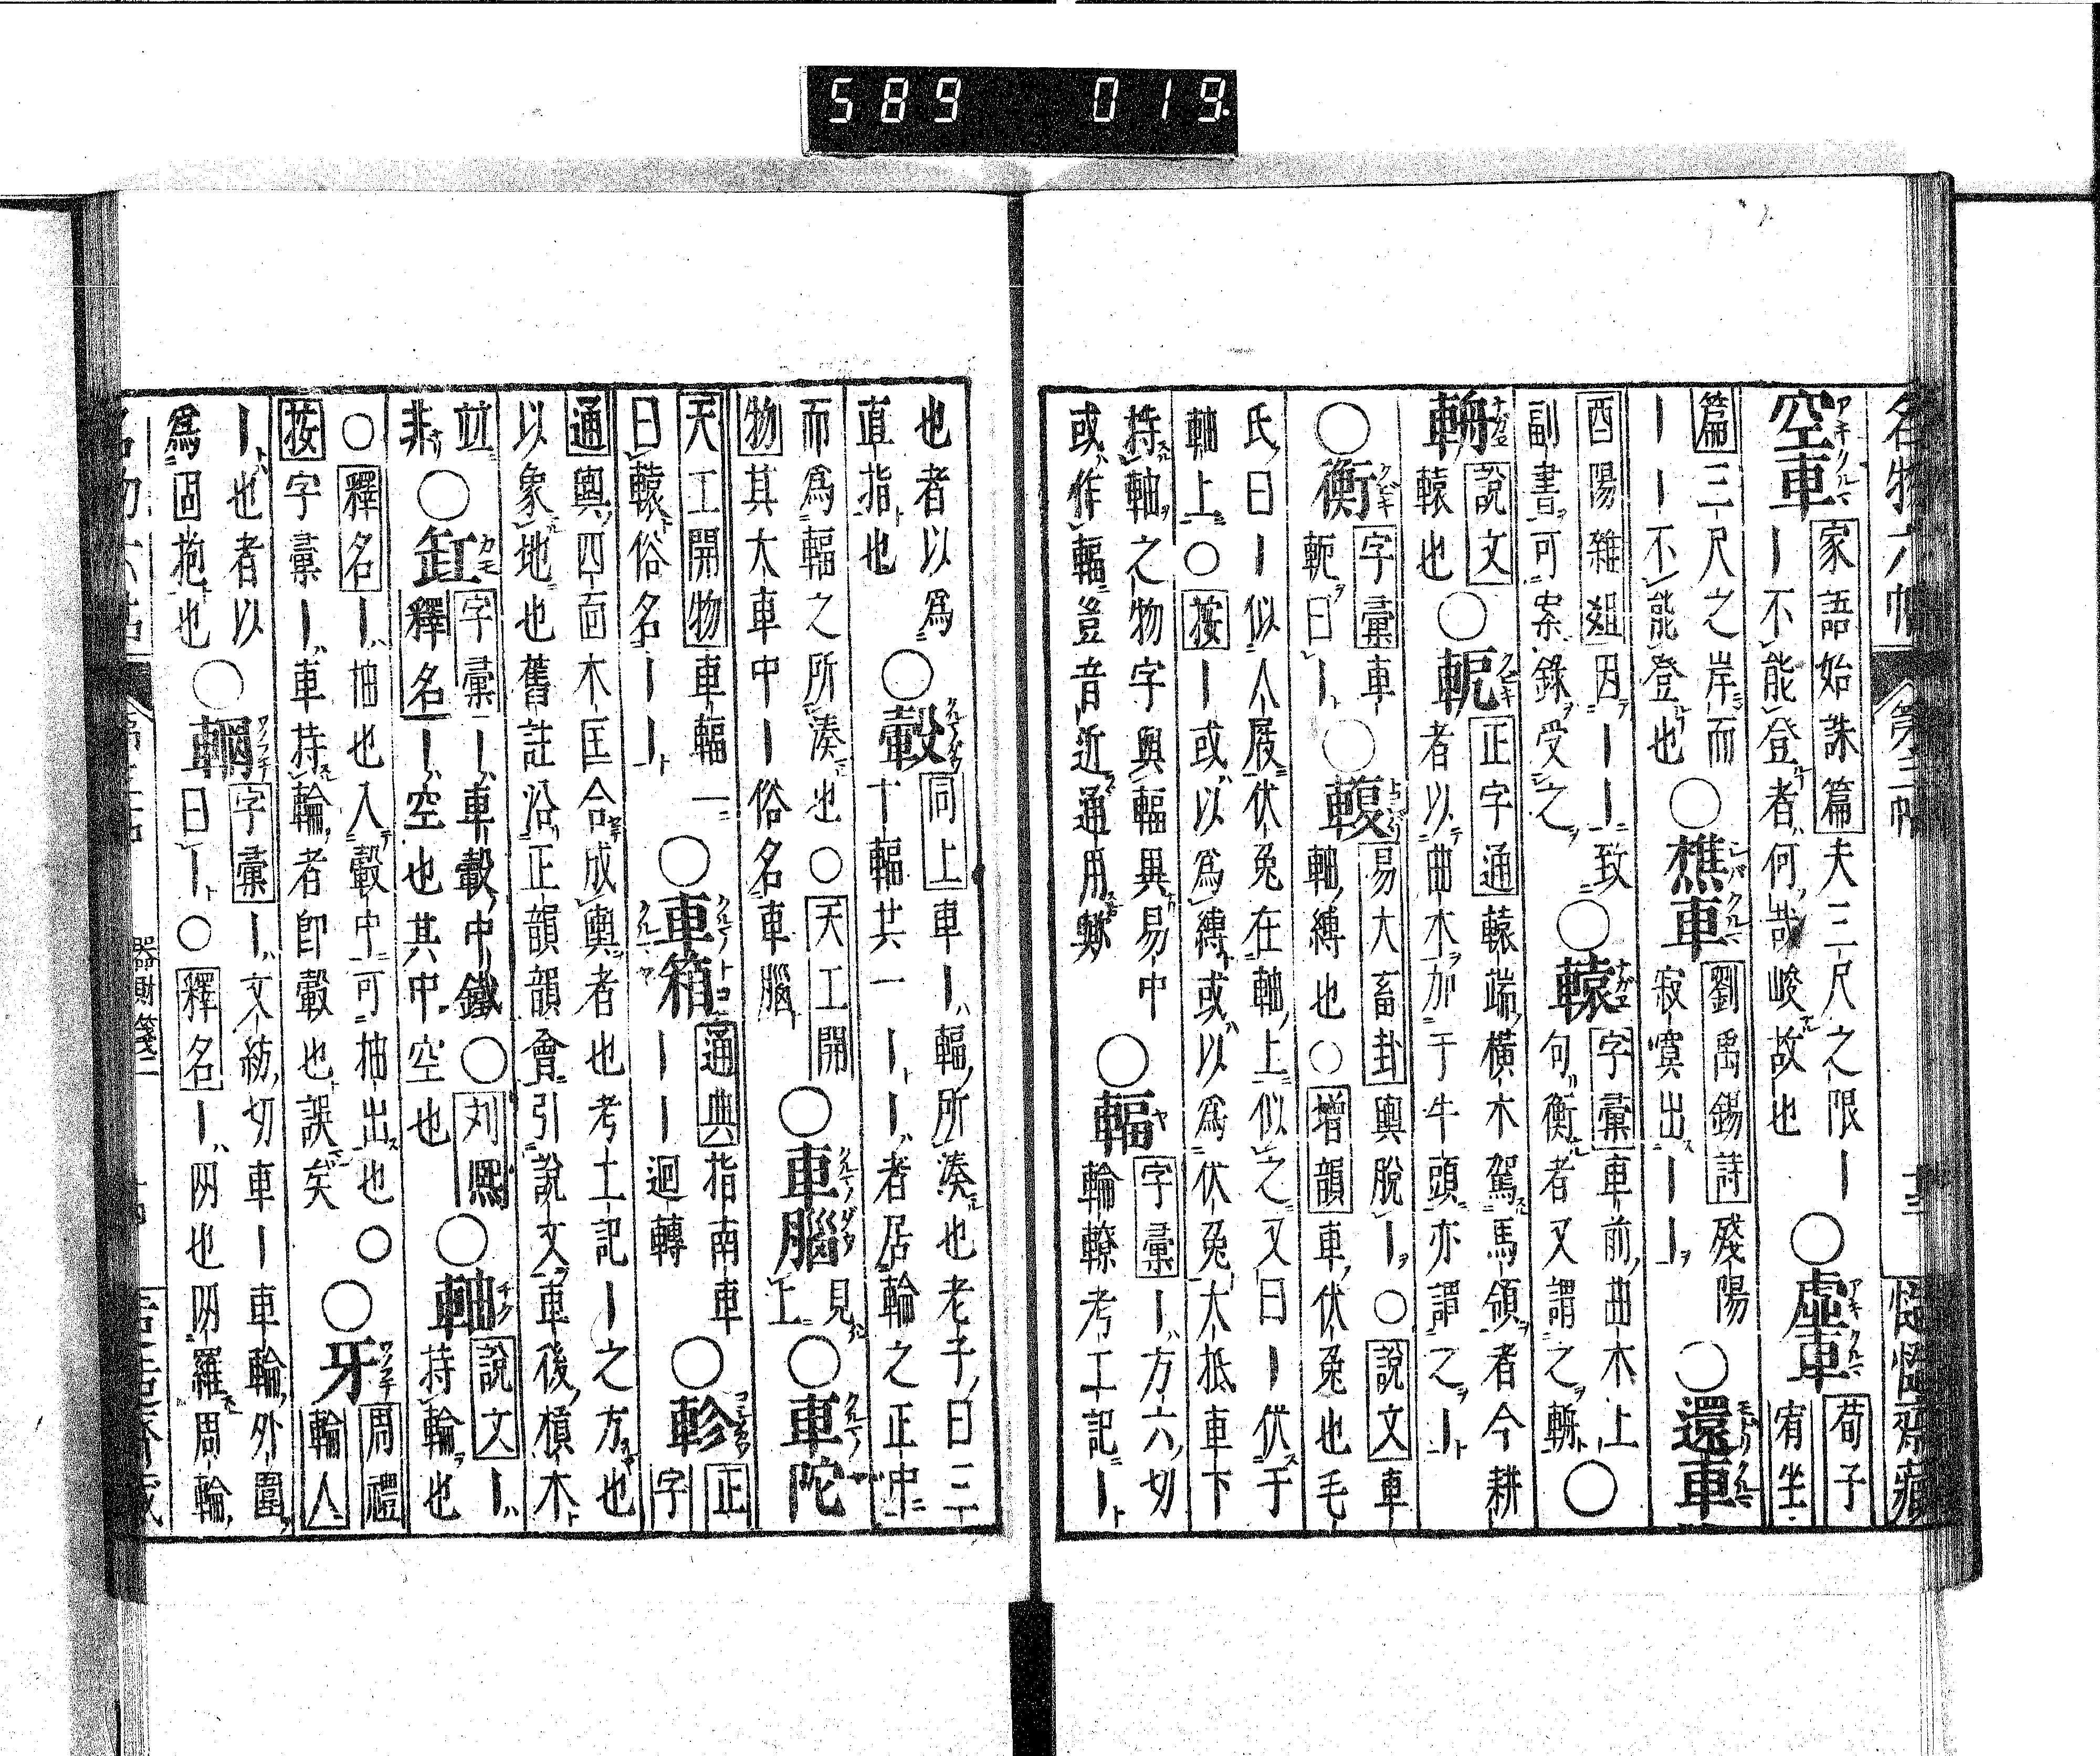 名物六帖 第三帖 十三
空車 アキクルマ
家語始誅篇夫三尺之限丨
丨不能登者何哉峻故也
〇虛車 アキクルマ
荀子
宥坐
篇三尺之岸而
丨丨不能登也
〇樵車
劉禹錫詩殘陽
寂寞出丨丨
〇還車
酉陽雜俎因丨丨致
副書可案錄受之
〇轅
字彙車前曲木上
句衡者又謂之輈
〇
輈
說文
轅也
〇軛
正字通轅端橫木駕馬領者今耕
者以曲木加于牛頭亦謂之丨
〇衡
字彙車
軛曰丨
〇輹
易大畜卦輿脫丨〇說文車
軸縛也〇增韻車伏兔也毛
氏曰丨似人屐伏兔在軸上似之又曰丨伏于
軸上〇按丨或以爲縛或以爲伏兔大抵車下
持軸之物字與輻異易中
或作輻豈音近通用歟
〇輻 ヤ
字彙丨方六切
輪轑考工記丨
也者以爲
直指也
〇轂
同上車丨輻所湊也老子曰三
十輻共一丨丨者居輪之正中
而爲輻之所湊也〇天工開
物其大車中丨俗名車腦
〇車腦
見
上
〇車陀
天工開物車輻一
曰轅俗名丨丨
〇車箱
通典指南車
丨丨迴轉
〇軫
正
字
通輿四面木匡合成輿者也考工記丨之方也
以象地也舊註沿正韻韻會引說文車後橫木
並
非
〇缸 カモ
字彙丨車轂中鐵〇刘熙
釋名丨空也其中空也
〇軸
說文丨
持輪也
〇釋名丨抽也入轂中可抽出也〇
按字彙丨車持輪者卽轂也誤矣
〇牙
周禮
輪人
丨也者以
爲固抱也
〇輞
字彙丨文紡切車丨車輪外圍
曰丨〇釋名丨罔也罔羅周輪
器財箋二